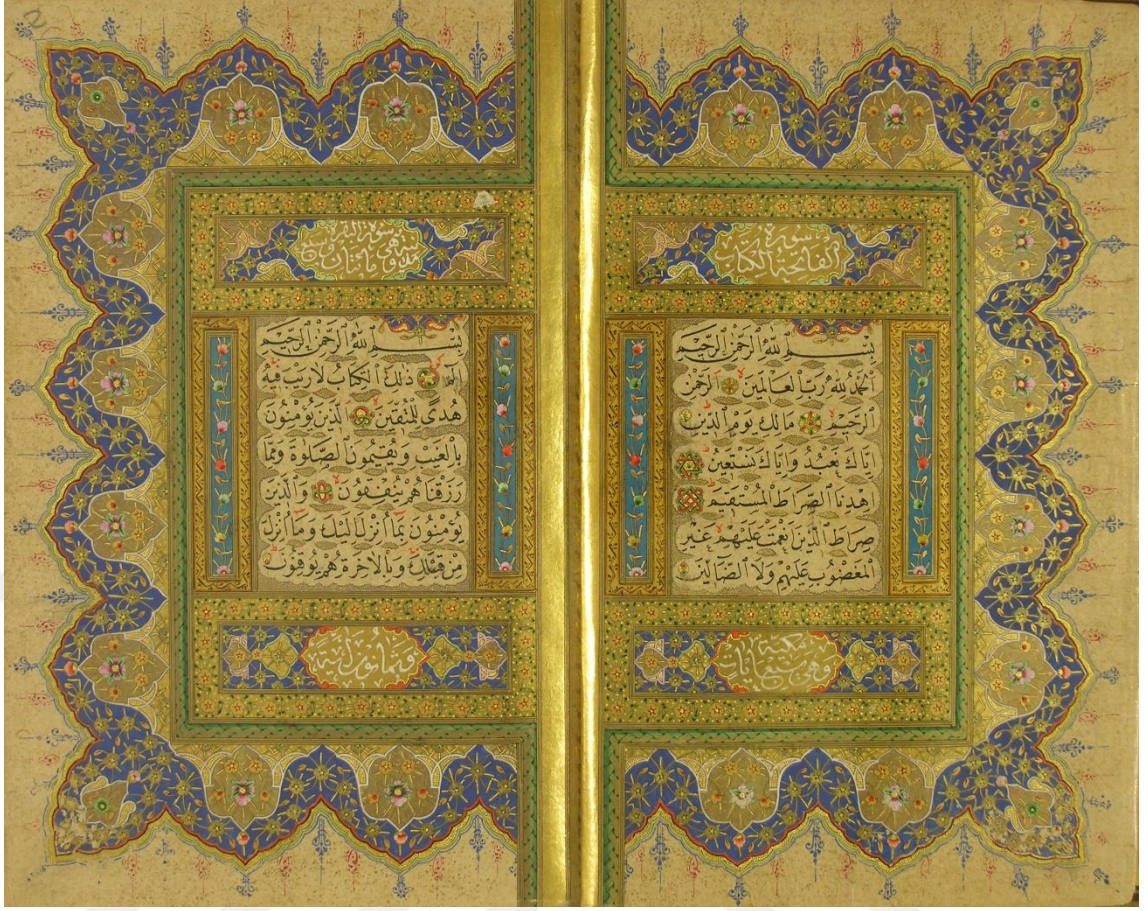 سورة
الفاتحة الكتاب
بسم الله الرحمن الرحيم
الحمد لله رب العالمين الرحمن
الرحيم مالك يوم الدين
اياك نعبد واياك نستعين
اهدنا الصراط المستقيم
صراط الذين انعمت عليهم غير
المغضوب عليهم ولا الضالين
مكية
وهي سبع ايات
سورة البقرة
مدنية وهي مائتان وسبع
بسم الله الرحمن الرحيم
الم ذلك الكتاب لا ريب فيه
هدى للمتقين الذين يؤمنون
بالغيب ويقيمون الصلوة ومما
رزقناهم ينفقون والذين
يؤمنون بما انزل اليك وما انزل
من قبلك وبالاخرة هم يوقنون
وثمانون اية